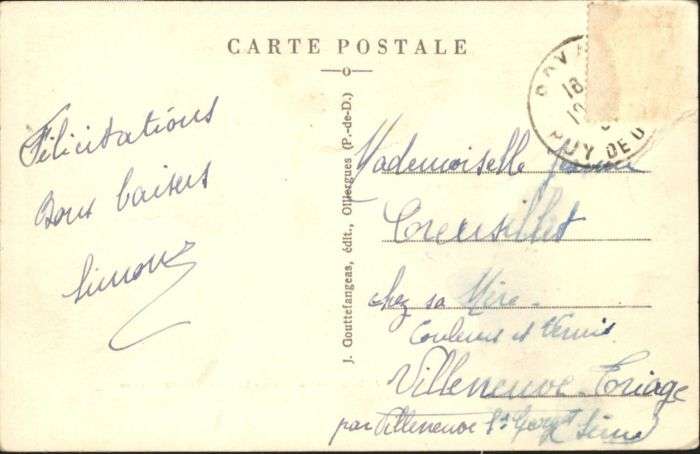 CARTE POSTALE
Félicitations
Bons baisers
Simone
J. Gouttefangeas, édit., Olliergues (P.-de-D.)
18
PUY DE D
Mademoiselle
Creusillet
chez sa Mère
Couleurs et Vernis
Villeneuve-Triage
par Villeneuve St Georges
Seine